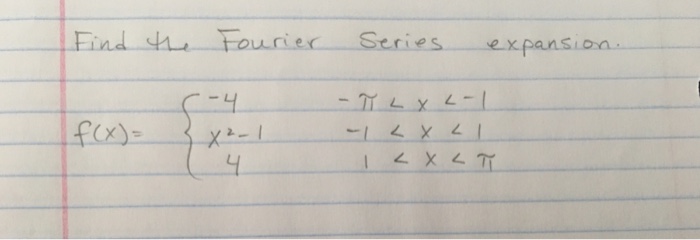 Find the Fourier Series expansion.
-4 -π < x < -1
f(x)= { x²-1 -1 < x < 1
4 1 < x < π